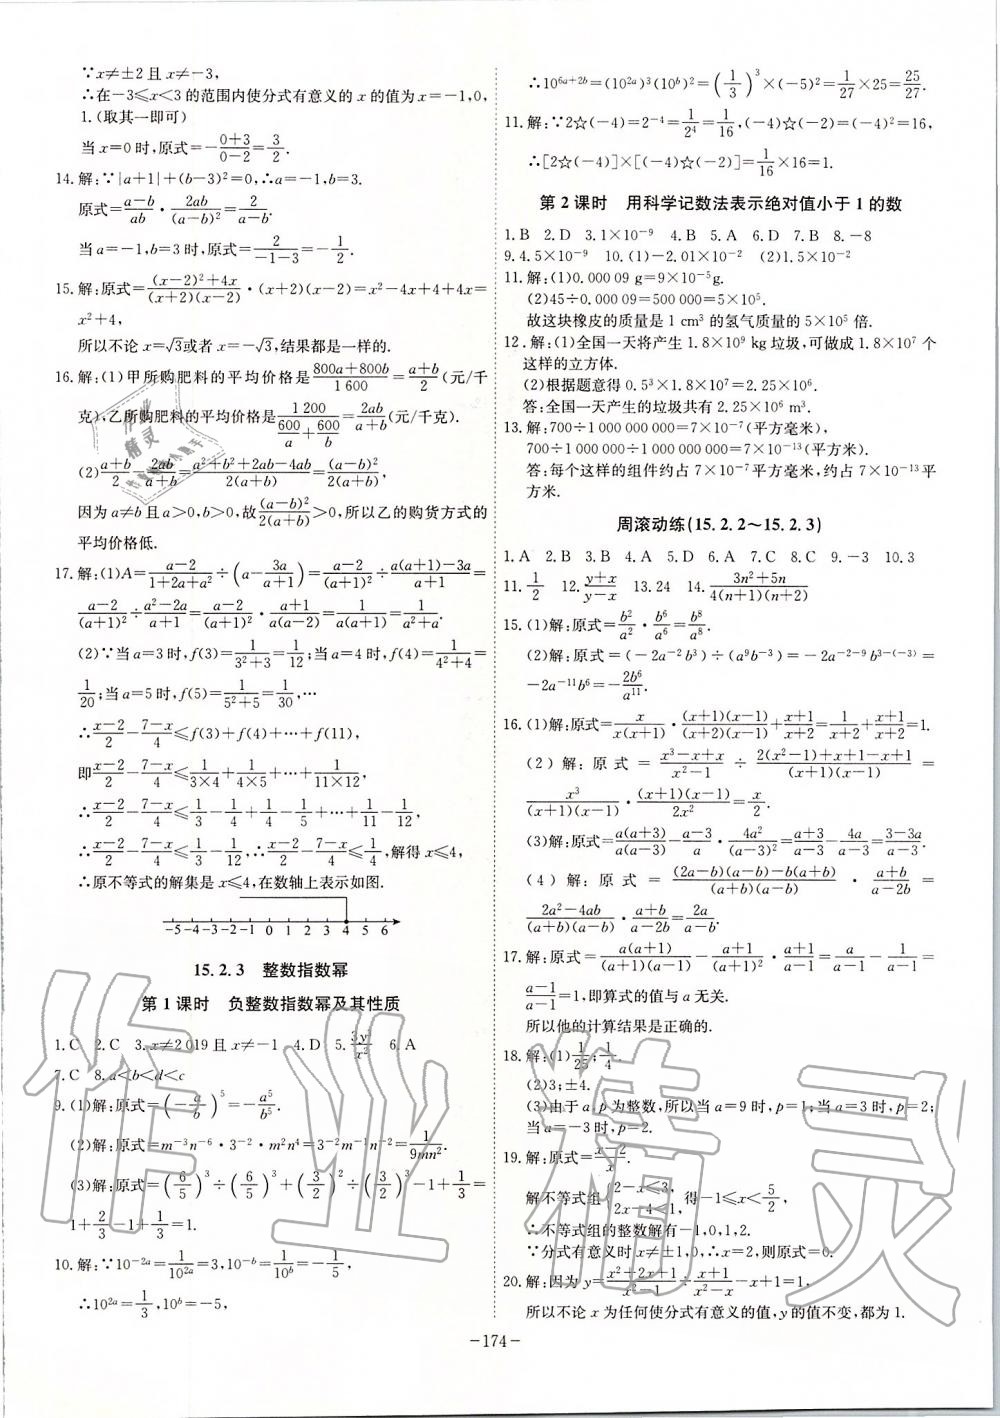 ∵x≠±2且x≠-3,
∴在-3≤x<3的范围内使分式有意义的x的值为x=-1,0,
1.(取其一即可)
当x=0时,原式=-\frac{0+3}{0-2}=\frac{3}{2}.
14.解:∵|a+1|+(b-3)²=0,∴a=-1,b=3.
原式=\frac{a-b}{ab}·\frac{2ab}{(a-b)²}=\frac{2}{a-b}.
当a=-1,b=3时,原式=\frac{2}{-1-3}=-\frac{1}{2}.
15.解:原式=\frac{(x-2)²+4x}{(x+2)(x-2)}·(x+2)(x-2)=x²-4x+4+4x=
x²+4,
所以不论x=√3或者x=-√3,结果都是一样的.
16.解:(1)甲所购肥料的平均价格是\frac{800a+800b}{1 600}=\frac{a+b}{2}(元/千
克),乙所购肥料的平均价格是\frac{1 200}{\frac{600}{a}+\frac{600}{b}}=\frac{2ab}{a+b}(元/千克).
(2)\frac{a+b}{2}-\frac{2ab}{a+b}=\frac{a²+b²+2ab-4ab}{2(a+b)}=\frac{(a-b)²}{2(a+b)}.
因为a≠b且a>0,b>0,故\frac{(a-b)²}{2(a+b)}>0,所以乙的购货方式的
平均价格低.
17.解:(1)A=\frac{a-2}{1+2a+a²}÷(a-\frac{3a}{a+1})=\frac{a-2}{(a+1)²}÷\frac{a(a+1)-3a}{a+1}=
\frac{a-2}{(a+1)²}÷\frac{a²-2a}{a+1}=\frac{a-2}{(a+1)²}·\frac{a+1}{a(a-2)}=\frac{1}{a(a+1)}=\frac{1}{a²+a}.
(2)∵当a=3时,f(3)=\frac{1}{3²+3}=\frac{1}{12};当a=4时,f(4)=\frac{1}{4²+4}=
\frac{1}{20};当a=5时,f(5)=\frac{1}{5²+5}=\frac{1}{30},…
∴\frac{x-2}{2}-\frac{7-x}{4}≤f(3)+f(4)+…+f(11),
即\frac{x-2}{2}-\frac{7-x}{4}≤\frac{1}{3×4}+\frac{1}{4×5}+…+\frac{1}{11×12},
∴\frac{x-2}{2}-\frac{7-x}{4}≤\frac{1}{3}-\frac{1}{4}+\frac{1}{4}-\frac{1}{5}+…+\frac{1}{11}-\frac{1}{12},
∴\frac{x-2}{2}-\frac{7-x}{4}≤\frac{1}{3}-\frac{1}{12},∴\frac{x-2}{2}-\frac{7-x}{4}≤\frac{1}{4},解得x≤4,
∴原不等式的解集是x≤4,在数轴上表示如图.
-5-4-3-2-1 0 1 2 3 4 5 6
15.2.3 整数指数幂
第1课时 负整数指数幂及其性质
1.C 2.C 3.x≠2 019且x≠-1 4.D 5.\frac{3y³}{x²} 6.A
7.C 8.a<b<d<c
9.(1)解:原式=(-\frac{a}{b})⁵=-\frac{a⁵}{b⁵}.
(2)解:原式=m⁻³n⁻⁶·3⁻²·m²n⁴=3⁻²m⁻¹n⁻²=\frac{1}{9mn²}.
(3)解:原式=(\frac{6}{5})³÷(\frac{6}{5})³+(\frac{3}{2})²÷(\frac{3}{2})³-1+\frac{1}{3}=
1+\frac{2}{3}-1+\frac{1}{3}=1.
10.解:∵10⁻²ᵃ=\frac{1}{10²ᵃ}=3,10⁻ᵇ=\frac{1}{10ᵇ}=-\frac{1}{5},
∴10²ᵃ=\frac{1}{3},10ᵇ=-5,
∴10⁶ᵃ⁺²ᵇ=(10²ᵃ)³(10ᵇ)²=(\frac{1}{3})³×(-5)²=\frac{1}{27}×25=\frac{25}{27}.
11.解:∵2☆(-4)=2⁻⁴=\frac{1}{2⁴}=\frac{1}{16},(-4)☆(-2)=(-4)²=16,
∴[2☆(-4)]×[(-4)☆(-2)]=\frac{1}{16}×16=1.
第2课时 用科学记数法表示绝对值小于1的数
1.B 2.D 3.1×10⁻⁹ 4.B 5.A 6.D 7.B 8.-8
9.4.5×10⁻⁹ 10.(1)-2.01×10⁻² (2)1.5×10⁻²
11.解:(1)0.000 09 g=9×10⁻⁵g.
(2)45÷0.000 09=500 000=5×10⁵.
故这块橡皮的质量是1 cm³的氢气质量的5×10⁵倍.
12.解:(1)全国一天将产生1.8×10⁹ kg垃圾,可做成1.8×10⁷个
这样的立方体.
(2)根据题意得0.5³×1.8×10⁷=2.25×10⁶.
答:全国一天产生的垃圾共有2.25×10⁶ m³.
13.解:700÷1 000 000 000=7×10⁻⁷(平方毫米),
700÷1 000 000÷1 000 000 000=7×10⁻¹³(平方米).
答:每个这样的组件约占7×10⁻⁷平方毫米,约占7×10⁻¹³平
方米.
周滚动练(15.2.2～15.2.3)
1.A 2.B 3.B 4.A 5.D 6.A 7.C 8.C 9.-3 10.3
11.\frac{1}{2} 12.\frac{y+x}{y-x} 13.24 14.\frac{3n²+5n}{4(n+1)(n+2)}
15.(1)解:原式=\frac{b²}{a²}·\frac{b⁶}{a⁶}=\frac{b⁸}{a⁸}.
(2)解:原式=(-2a⁻²b³)÷(a⁹b⁻³)=-2a⁻²⁻⁹b³⁻⁽⁻³⁾=
-2a⁻¹¹b⁶=-\frac{2b⁶}{a¹¹}.
16.(1)解:原式=\frac{x}{x(x+1)}·\frac{(x+1)(x-1)}{(x+2)(x-1)}+\frac{x+1}{x+2}=\frac{1}{x+2}+\frac{x+1}{x+2}=1.
(2)解:原式=\frac{x³-x+x}{x²-1}÷\frac{2(x²-1)+x+1-x+1}{(x+1)(x-1)}=
\frac{x³}{(x+1)(x-1)}·\frac{(x+1)(x-1)}{2x²}=\frac{x}{2}.
(3)解:原式=\frac{a(a+3)}{a(a-3)}-\frac{a-3}{a}·\frac{4a²}{(a-3)²}=\frac{a+3}{a-3}-\frac{4a}{a-3}=\frac{3-3a}{a-3}.
(4)解:原式=\frac{(2a-b)(a-b)-b(a+b)}{(a+b)(a-b)}·\frac{a+b}{a-2b}=
\frac{2a²-4ab}{(a+b)(a-b)}·\frac{a+b}{a-2b}=\frac{2a}{a-b}.
17.解:原式=\frac{a(a+1)}{(a+1)(a-1)}·\frac{a+1}{a+1}-\frac{1}{a-1}=\frac{a}{a-1}-\frac{1}{a-1}=
\frac{a-1}{a-1}=1,即算式的值与a无关.
所以他的计算结果是正确的.
18.解:(1)\frac{1}{25};\frac{1}{4}.
(2)3;±4.
(3)由于a,p为整数,所以当a=9时,p=1;当a=3时,p=2;
当a=-3时,p=2.
19.解:原式=\frac{x-2}{x-1}.
解不等式组{2-x≤3,2x-4<1,得-1≤x<\frac{5}{2},
∴不等式组的整数解有-1,0,1,2.
∵分式有意义时x≠±1,0,∴x=2,则原式=0.
20.解:因为y=\frac{x²+2x+1}{x²-1}÷\frac{x+1}{x²-x}-x+1=1,
所以不论x为任何使分式有意义的值,y的值不变,都为1.
-174-
作业精灵